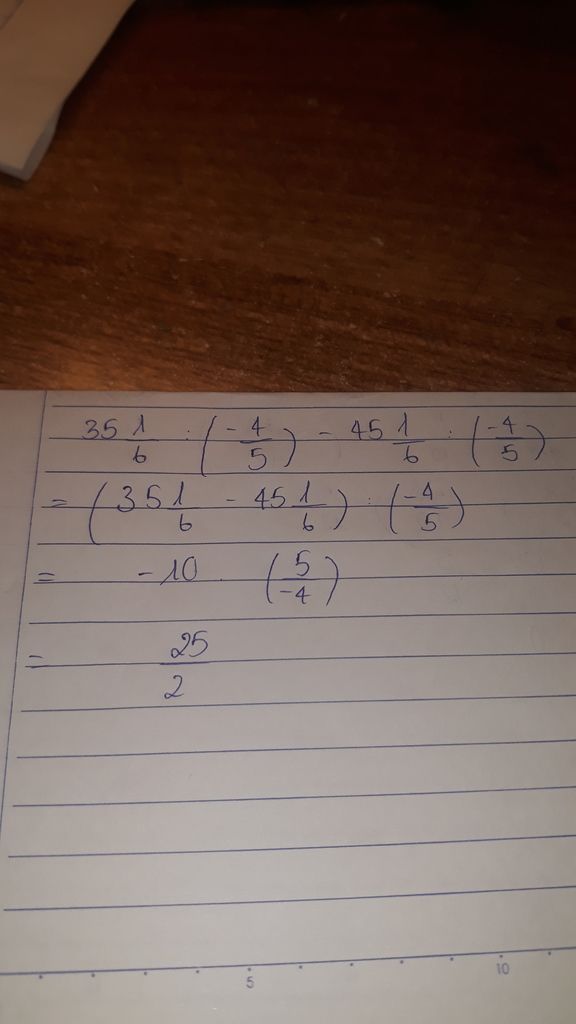 35 1/6 : (-4/5) - 45 1/6 : (-4/5)
= (35 1/6 - 45 1/6) : (-4/5)
= -10 . (5/-4)
= 25/2
5 10